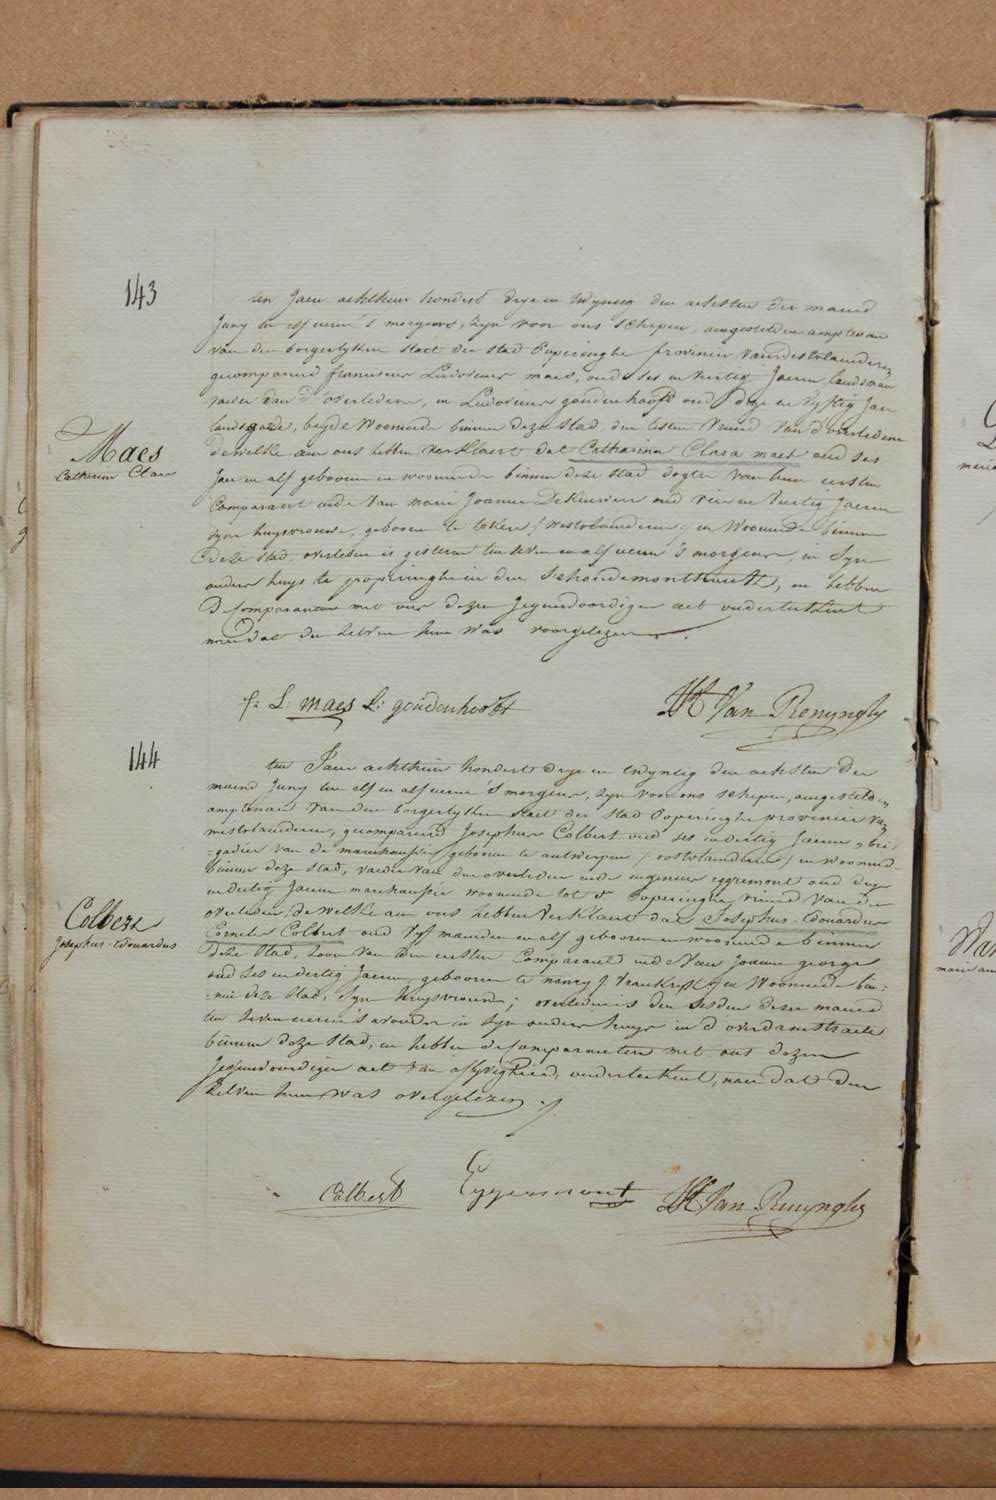 143
ten Jaere achthien hondert drye en twyntig den achsten der maend
Juny ten elf ueren 's morgens, zyn voor ons schepen, aengestelden amptenaer
van den borgerlyken staet der stad Poperinghe provincie van westvlaenderen
gecompareerd franciscus Ludovicus maes, oud ses en veertig Jaeren, landsman
vader van d'overledene, en Ludovicus goudenhooft oud drye en vyftig Jaer
beyde woonende binnen deze stad, den lesten vriend van d'overledene
dewelke aen ons hebben verklaert dat Catharina Clara maes oud ses
Jaer en alf gebooren en woonende binnen deze stad dogter van den eersten
Comparant ende van marie Joanna oud een en veertig Jaeren
zyne huysvrouwe, gebooren te lokere (westvlaenderen) en woonende binnen
deze stad, overleden is gisteren ten seven en alf ueren 's morgens, in syn
ouders huys te poperinghe in den en hebben
de Comparanten met ons dezen Jegenwoordigen act onderteekent
naer dat den zelven hun was voorgelezen
Maes
Catharina Clara
f: L: maes L: goudenhooft
Van Renynghe
144
ten Jaere achthien hondert drye en twyntig den achsten der
maend Juny ten elf en alf ueren 's morgens, zyn voor ons schepen, aengestelden
amptenaer van den borgerlyken staet der stad Poperinghe provincie van
westvlaenderen, gecompareerd Josephus Colbert oud ses en dertig Jaeren, bri=
=gadier van de marchaussée gebooren te antwerpen (oostvlaenderen) en woonend
binnen deze stad, vader van den overleden ende eggremont oud drye
en dertig Jaeren marchaussée woonende tot d' Poperinghe vriend van den
overleden, dewelke aen ons hebben verklaert dat Josephus-Edouardus
Cornelis Colbert oud vyf maenden en alf gebooren en woonende binnen
deze stad, zoon van den eersten Comparant ende van Joanna george
oud ses en dertig Jaeren, gebooren te nancy (Vrankryk) en woonende bin=
=nen deze stad, syn huysvrouwe; overleden is den sesden dezer maend
ten seven ueren 's avonds in syn ouders huys in d'overdamstraete
binnen deze stad, en hebben de Comparanten met ons dezen
Jegenwoordigen act van aflyvigheid, onderteekent, naer dat den
zelven hun was overgelezen
Colbert
Josephus-Edouardus
Colbert
Eggermont
Van Renynghe